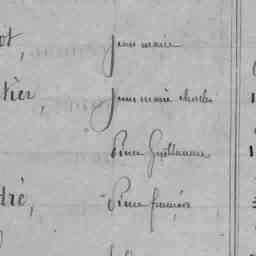 ot, Jean marie
tier, Jean marie charles
Pierre Guillaume
dré, Pierre françois